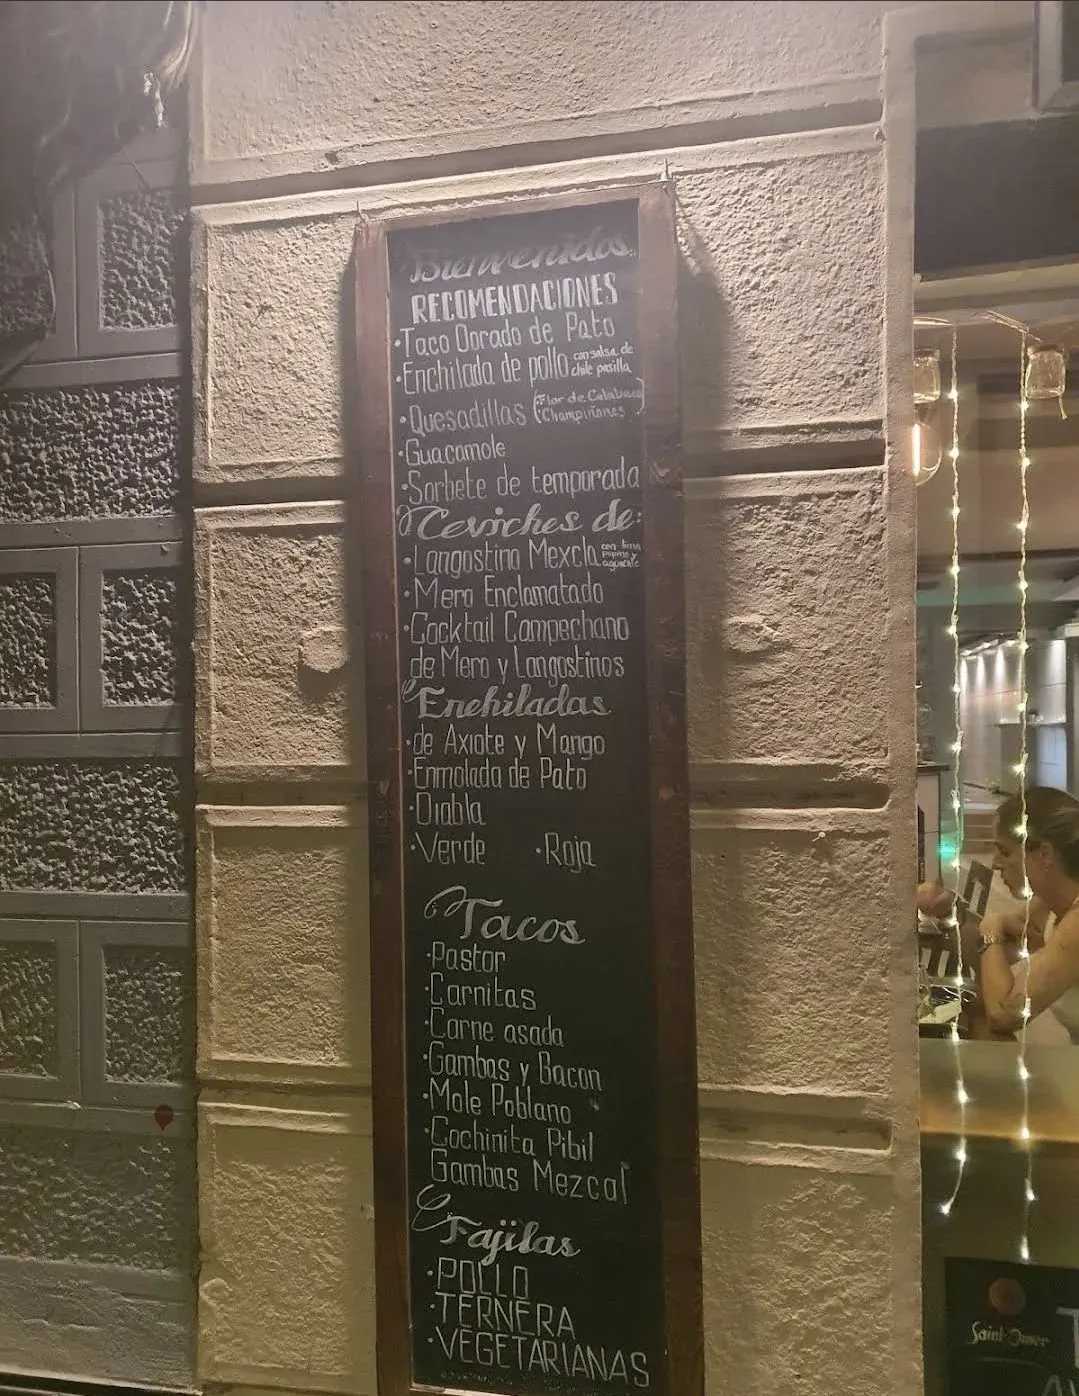 Bienvenidos
RECOMENDACIONES
·Taco Dorado de Pato
·Enchilada de pollo con salsa de
chile pasilla
·Quesadillas (Flor de Calabaza
Champiñones)
·Guacamole
·Sorbete de temporada
Ceviches de:
·Langostino Mexcla con lima,
pepino y
aguacate
·Mero Enclamatado
·Cocktail Campechano
de Mero y Langostinos
Enchiladas
·de Axiote y Mango
·Enmolada de Pato
·Diabla
·Verde ·Roja
Tacos
·Pastor
·Carnitas
·Carne asada
·Gambas y Bacon
·Mole Poblano
·Cochinita Pibil
Gambas Mezcal
Fajilas
·POLLO
·TERNERA
·VEGETARIANAS
Saint-Omer